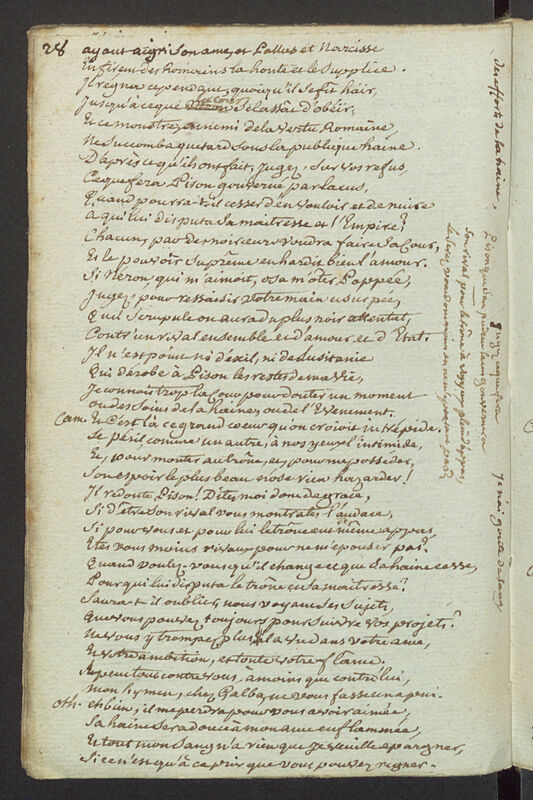 28 ayant aigri son ame, et Pallas et Narcisse
En firent des Romains la honte et le Supplice.
Il regna cependant, quoiqu'il se fit hair,
Jusqu'à ce que se lassât d'obéir;
Et ce monstre, ennemi de la vertu Romaine,
Ne Succomba que tard Sous la publique haine.
D'après ce qu'ils ont fait, Jugez, Sur vos refus,
Ce que fera Pison gouverné par Lacus,
Quand pourra-t-il cesser d'en vouloir et de nuire
a qui lui disputa Sa maitresse et l'Empire?
Chacun, par des noirceurs voudra faire Sa Cour,
Et le pouvoir Suprême enhardit bien l'amour.
Si Neron, qui m'aimoit, osa m'ôter Poppée,
Jugez, pour ressaisir votre main usurpée,
Qu'il Scrupule on aura du plus noir attentat,
Contr'un rival ensemble et d'amour et d'Etat.
Il n'est point ni d'exil, ni de Lusitanie
Qui dérobe à Pison les restes de ma vie,
Je connois trop la Cour pour douter un moment
ou des Soins de la haine, ou de l'Evenement.
Cam. Et c'est la ce grand coeur qu'on croioit intrépide,
Le péril comme un autre, à nos yeux l'intimide,
Et, pour monter au trône, et, pour me posseder,
Son espoir le plus beau n'ose rien hazarder!
Il redoute Pison! Dites, moi donc de grace,
Si d'être Son rival vous montrates l'audace,
Si pour vous et pour lui le trône eut même appas,
Etes vous moins rivaux pour ne m'épouser pas?
Quand voulez-vous qu'il change et que Sa haine cesse,
Pour qui lui disputa le trône et Sa maitresse?
Saura-t-il oublier, nous voyant des Sujets,
Que vous pouvez toujours pour Suivre vos projets?
Ne vous y trompez plus: il a vu dans votre ame,
Et votre ambition, et toute votre flâme.
Il peut tout contre vous, à moins que contre lui,
mon hymen, chez Galba, ne vous fasse un appui.
oth. eh bien, il me perdra pour vous avoir aimée,
Sa haine Sera douce à mon ame enflammée,
Et tout mon Sang n'a rien que je veuille épargner,
Si ce n'est qu'à ce prix que vous pouvez regner.
des efforts de la haine,
Jugez ce que fera